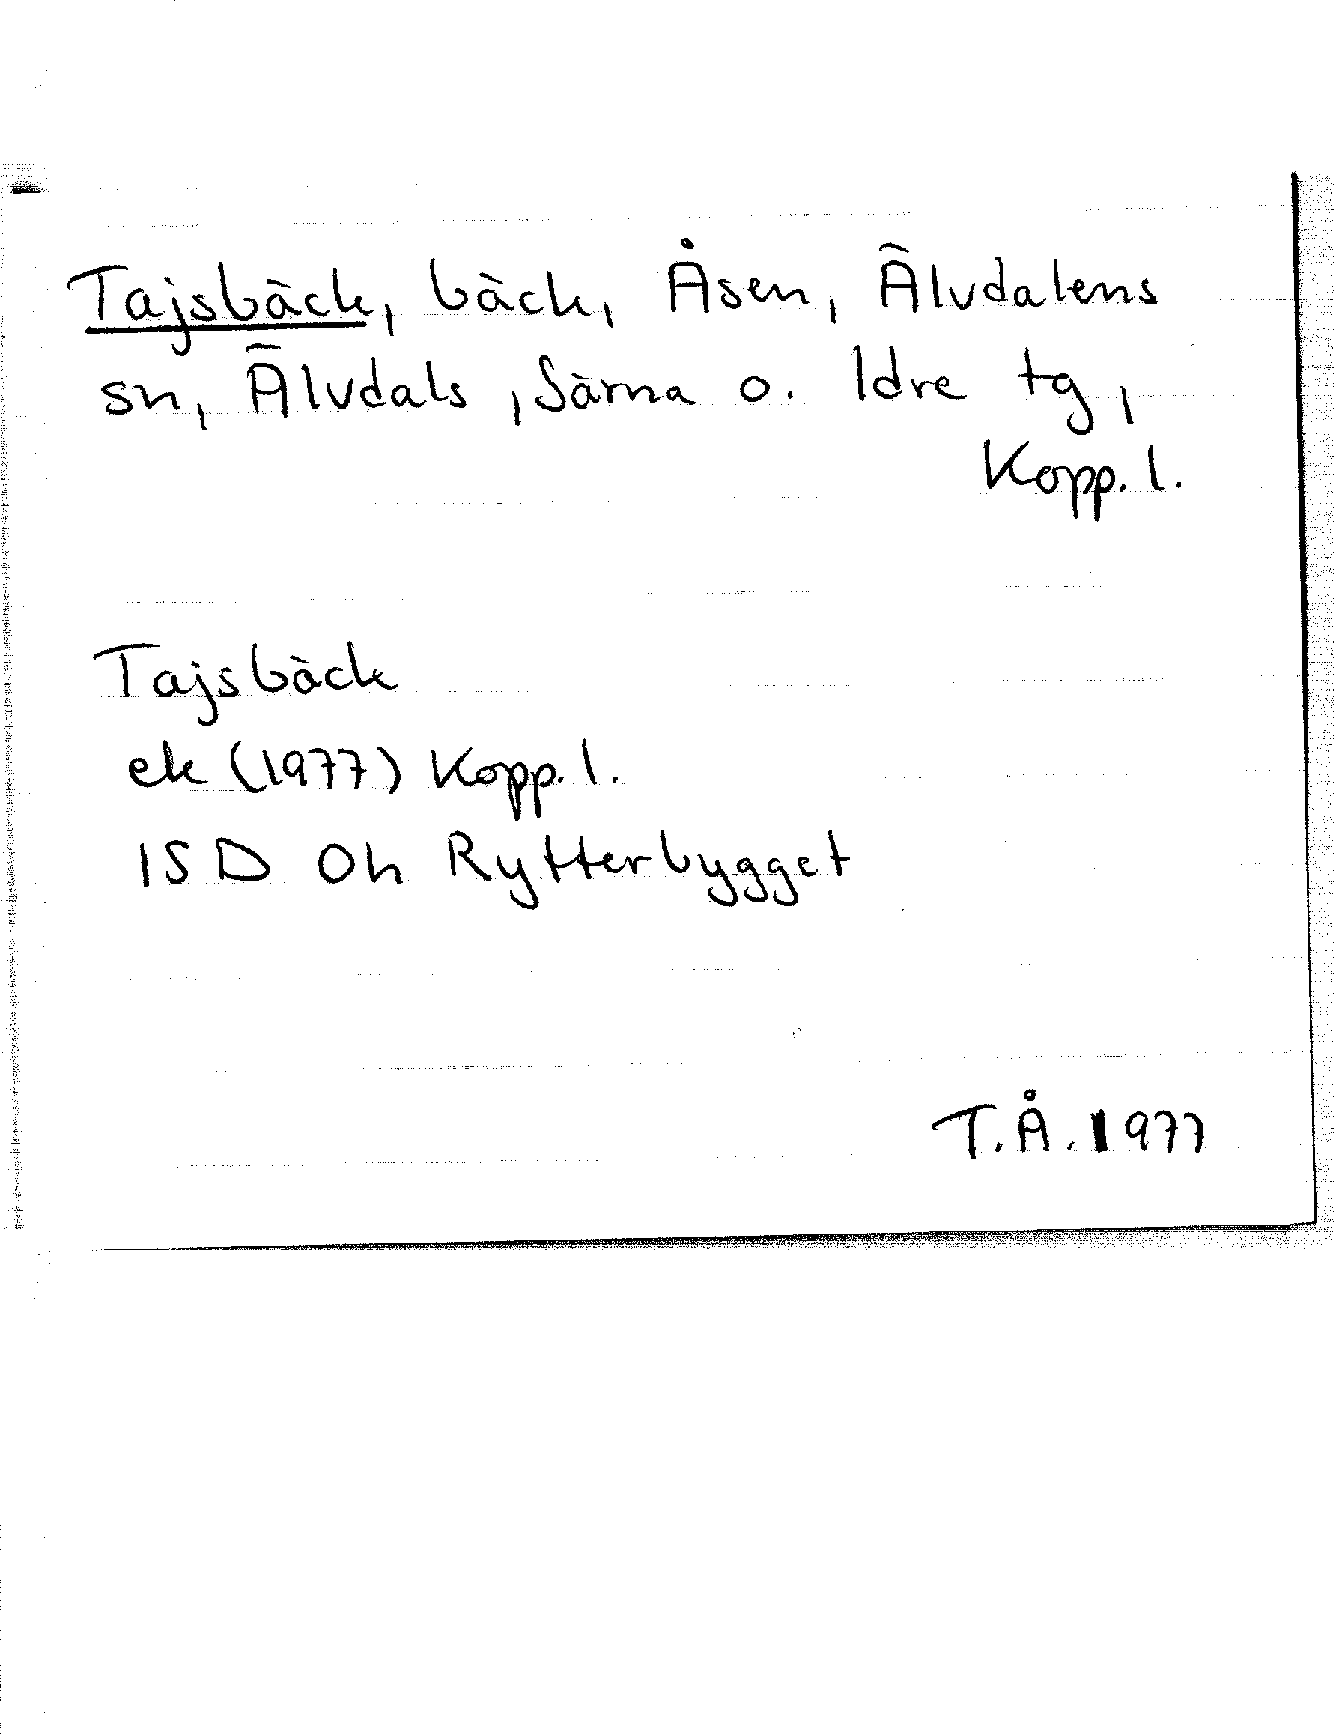 Tajsbäck, bäck, Åsen, Älvdalens
sn, Älvdals, Särna o. Idre tg,
Kopp. l.
Tajsbäck
ek (1977) Kopp. l.
15D Oh Rytterbygget
T.Å. 1977